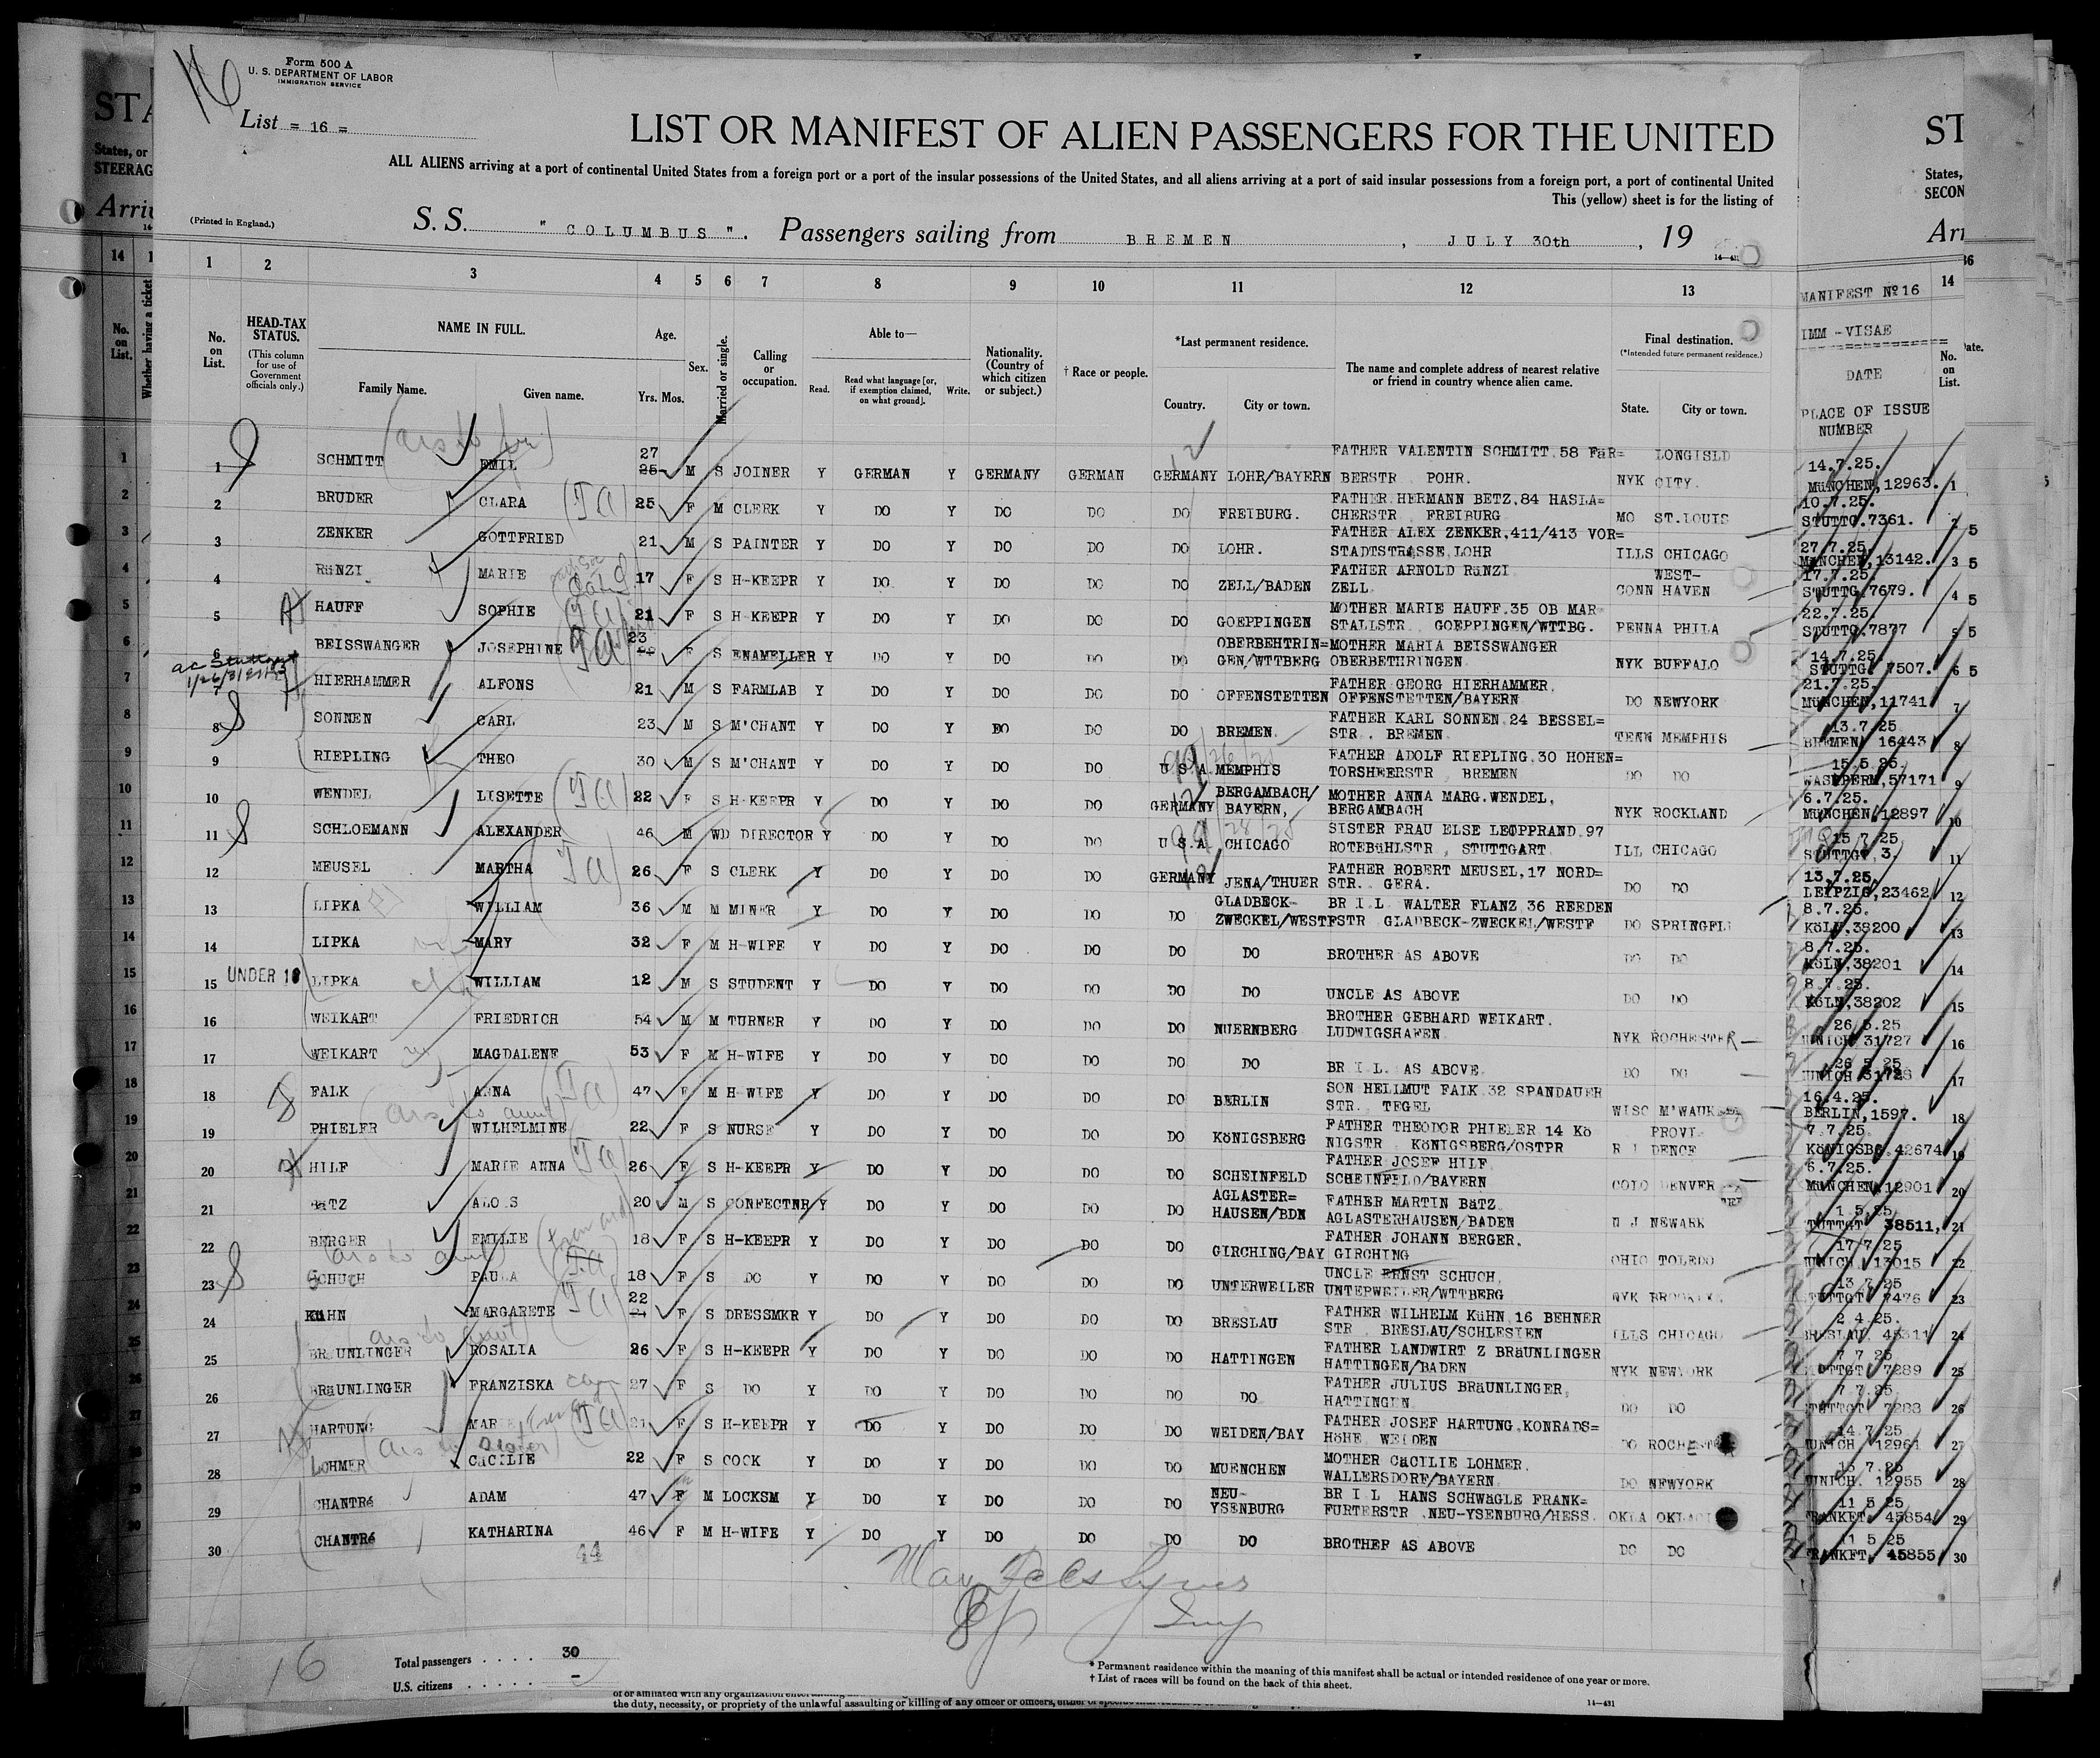 16
Form 500 A
U. S. DEPARTMENT OF LABOR
IMMIGRATION SERVICE
List = 16 =
LIST OR MANIFEST OF ALIEN PASSENGERS FOR THE UNITED
ALL ALIENS arriving at a port of continental United States from a foreign port or a port of the insular possessions of the United States, and all aliens arriving at a port of said insular possessions from a foreign port, a port of continental United
This (yellow) sheet is for the listing of
(Printed in England.)
S. S. " COLUMBUS ". Passengers sailing from BREMEN , JULY 30th , 19
1 2 3 4 5 6 7 8 9 10 11 12 13
No. on List.
HEAD-TAX STATUS.
(This column for use of Government officials only.)
NAME IN FULL.
Family Name. Given name.
Age.
Yrs. Mos.
Sex.
Married or single.
Calling or occupation.
Able to—
Read. Read what language [or, if exemption claimed, on what ground]. Write.
Nationality. (Country of which citizen or subject.)
† Race or people.
*Last permanent residence.
Country. City or town.
The name and complete address of nearest relative or friend in country whence alien came.
Final destination.
(*Intended future permanent residence.)
State. City or town.
MANIFEST Nº 16
IMM - VISAE
DATE
PLACE OF ISSUE
NUMBER
14
No. on List.
1 SCHMITT EMIL 27 25 M S JOINER Y GERMAN Y GERMANY GERMAN GERMANY LOHR/BAYERN FATHER VALENTIN SCHMITT,58 FäR= BERSTR POHR. NYK LONGISLD CITY. 14.7.25. MüNCHEN,12963. 1
2 BRUDER CLARA (TA) 25 F M CLERK Y DO Y DO DO DO FREIBURG. FATHER HERMANN BETZ,84 HASLA= CHERSTR FREIBURG MO ST.LOUIS 10.7.25. STUTTG.7361. 2
3 ZENKER GOTTFRIED 21 M S PAINTER Y DO Y DO DO DO LOHR. FATHER ALEX ZENKER,411/413 VOR= STADTSTRASSE,LOHR ILLS CHICAGO 27.7.25. MüNCHEN,13142. 3
4 RüNZI MARIE 17 F S H-KEEPR Y DO Y DO DO DO ZELL/BADEN FATHER ARNOLD RüNZI ZELL CONN WEST-HAVEN 17.7.25. STUTTG.7679. 4
5 HAUFF SOPHIE 21 F S H-KEEPR Y DO Y DO DO DO GOEPPINGEN MOTHER MARIE HAUFF.35 OB MAR STALLSTR GOEPPINGEN/WTTBG. PENNA PHILA 22.7.25. STUTTG.7877 5
6 BEISSWANGER JOSEPHINE TA 23 F S ENAMELLER Y DO Y DO DO DO OBERBEHTRIN= GEN/WTTBERG MOTHER MARIA BEISSWANGER OBERBETHRINGEN NYK BUFFALO 14.7.25. STUTTG. 7507. 6
7 HIERHAMMER ALFONS 21 M S FARMLAB Y DO Y DO DO DO OFFENSTETTEN FATHER GEORG HIERHAMMER, OFFENSTETTEN/BAYERN DO NEWYORK 21.7.25. MüNCHEN,11741 7
8 SONNEN CARL 23 M S M'CHANT Y DO Y DO DO DO BREMEN FATHER KARL SONNEN,24 BESSEL= STR. BREMEN TENN MEMPHIS 13.7.25 BREMEN 16443 8
9 RIEPLING THEO 30 M S M'CHANT Y DO Y DO DO U S A MEMPHIS FATHER ADOLF RIEPLING,30 HOHEN= TORSHEERSTR BREMEN DO DO 15.5.25. 57171 9
10 WENDEL LISETTE (TA) 22 F S H-KEEPR Y DO Y DO DO GERMANY BERGAMBACH/ BAYERN, MOTHER ANNA MARG.WENDEL, BERGAMBACH NYK ROCKLAND 6.7.25. MüNCHEN,12897 10
11 SCHLOEMANN ALEXANDER 46 M WD DIRECTOR Y DO Y DO DO U S A CHICAGO SISTER FRAU ELSE LEOPPRAND,97 ROTEBüHLSTR, STUTTGART ILL CHICAGO 15.7.25 STUTTGT, 3. 11
12 MEUSEL MARTHA (TA) 26 F S CLERK Y DO Y DO DO GERMANY JENA/THUER FATHER ROBERT MEUSEL,17 NORD= STR. GERA. DO DO 13.7.25. LEIPZIG,23462 12
13 LIPKA WILLIAM 36 M M MINER Y DO Y DO DO DO GLADBECK- ZWECKEL/WESTF BR I L WALTER FLANZ,36 REEDEN STR GLADBECK-ZWECKEL/WESTF DO SPRINGFL 8.7.25. KöLN,38200 13
14 LIPKA MARY 32 F M H-WIFE Y DO Y DO DO DO DO BROTHER AS ABOVE DO DO 8.7.25. KöLN,38201 14
15 UNDER 18 LIPKA WILLIAM 12 M S STUDENT Y DO Y DO DO DO DO UNCLE AS ABOVE DO DO 8.7.25. KöLN,38202 15
16 WEIKART FRIEDRICH 54 M M TURNER Y DO Y DO DO DO NUERNBERG BROTHER GEBHARD WEIKART. LUDWIGSHAFEN NYK ROCHESTER 26.5.25 UNICH 31727 16
17 WEIKART MAGDALENE 53 F M H-WIFE Y DO Y DO DO DO DO BR I L. AS ABOVE DO DO 26 5 25 UNICH 31728 17
18 FALK ANNA (TA) 47 F M H-WIFE Y DO Y DO DO DO BERLIN SON HELLMUT FALK 32 SPANDAUER STR. TEGEL WISC M'WAUK 16.4.25. BERLIN,1597. 18
19 PHIELER WILHELMINE 22 F S NURSE Y DO Y DO DO DO KöNIGSBERG FATHER THEODOR PHIELER 14 Kö NIGSTR KöNIGSBERG/OSTPR R I PROVI- DENCE 7.7.25. KöNIGSBG.42674 19
20 HILF MARIE ANNA (TA) 26 F S H-KEEPR Y DO Y DO DO DO SCHEINFELD FATHER JOSEF HILF SCHEINFELD/BAYERN COLO DENVER 6.7.25. MüNCHEN 12901 20
21 BäTZ ALOIS 20 M S CONFECTNR Y DO Y DO DO DO AGLASTER= HAUSEN/BDN FATHER MARTIN BäTZ AGLASTERHAUSEN/BADEN N J NEWARK 1.5.25 TUTTGT 38511, 21
22 BERGER EMILIE 18 F S H-KEEPR Y DO Y DO DO DO GIRCHING/BAY FATHER JOHANN BERGER. GIRCHING OHIO TOLEDO 17 7 25 UNICH 13015 22
23 SCHUCH PAULA 18 F S DO Y DO Y DO DO DO UNTERWEILER UNCLE ERNST SCHUCH, UNTERWEILER/WTTBERG NYK BROOKLYN 13 7 25 TUTTGT 7476 23
24 KüHN MARGARETE (TA) 22 F S DRESSMKR Y DO Y DO DO DO BRESLAU FATHER WILHELM KüHN,16 BEHNER STR BRESLAU/SCHLESIEN ILLS CHICAGO 2 4.25. BRESLAU 45311 24
25 BRäUNLINGER ROSALIA 26 F S H-KEEPR Y DO Y DO DO DO HATTINGEN FATHER LANDWIRT Z BRäUNLINGER HATTINGEN/BADEN NYK NEWYORK 7 7 25 UTTGT 7289 25
26 BRäUNLINGER FRANZISKA 27 F S DO Y DO Y DO DO DO DO FATHER JULIUS BRäUNLINGER, HATTINGEN DO DO 7 7.25 TUTTGT 7288 26
27 HARTUNG MARIE (TA) 21 F S H-KEEPR Y DO Y DO DO DO WEIDEN/BAY FATHER JOSEF HARTUNG,KONRADS= HöHE WEIDEN DO ROCHEST 14.7.25 UNICH 12961 27
28 LOHMER CäCILIE 22 F S COOK Y DO Y DO DO DO MUENCHEN MOTHER CäCILIE LOHMER, WALLERSDORF/BAYERN DO NEWYORK 13 7.25 UNICH. 12955 28
29 CHANTRé ADAM 47 F M LOCKSM Y DO Y DO DO DO NEU- YSENBURG BR I L HANS SCHWäGLE FRANK= FURTERSTR NEU-YSENBURG/HESS. OKLA 11 5 25 RANKFT. 45854 29
30 CHANTRé KATHARINA 46 F M H-WIFE Y DO Y DO DO DO DO BROTHER AS ABOVE DO DO 11 5 25 RANKFT. 45855 30
44
16
Total passengers . . . . 30
U.S. citizens . . . . . –
* Permanent residence within the meaning of this manifest shall be actual or intended residence of one year or more.
† List of races will be found on the back of this sheet.
14—431
the duty, necessity, or propriety of the unlawful assaulting or killing of any officer or officers,